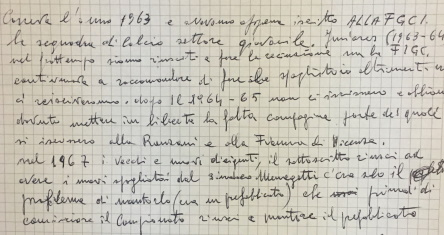 Correva l'anno 1963 e avevamo appena iscritto ALLA FGCI.
la squadra di calcio settore giovanile, Juniores (1963-64
nel frattempo siamo riusciti a fare la iscrizione ma la FIGC.
continuava a raccomandare di fare spogliatoio altrimenti
ci . dopo Il 1964-65 non ci iscrissero e
dovuto mettere in la fatta compagine parte dei quali
si iscrissero alla e alla Vicenza.
nel 1967 i vecchi e nuovi dirigenti, il sottoscritto riuscì ad
avere i nuovi spogliatoi dal sindaco Meneghetti c'era solo il
problema di montarlo (era un prefabbricato) che prima di
cominciare il Campionato riuscì a montare il prefabbricato